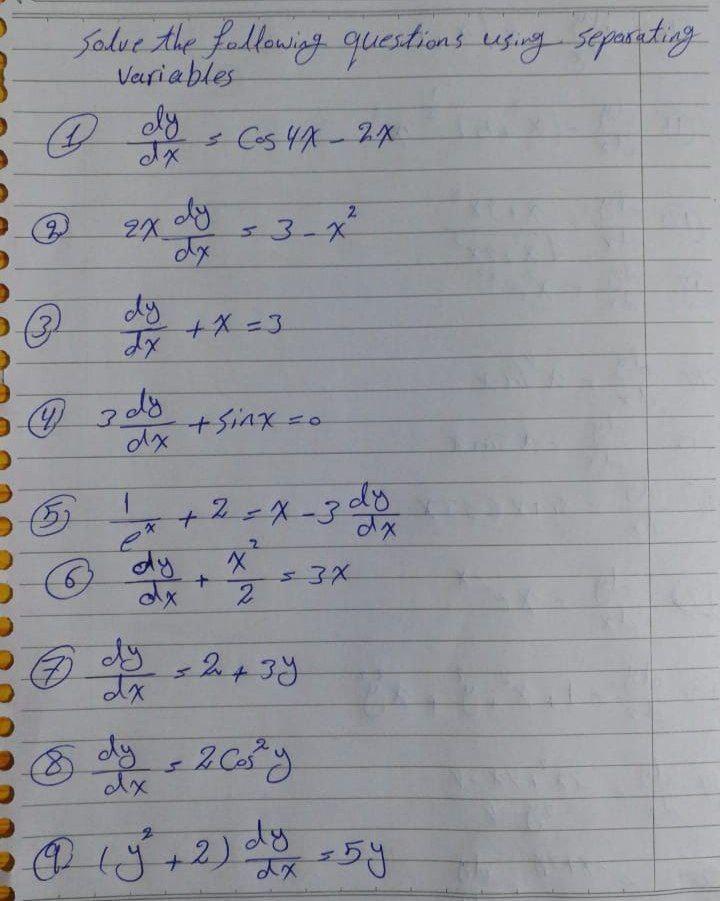 Solve the following questions using separating
variables
① dy/dx = Cos 4x - 2x
② 2x dy/dx = 3 - x²
③ dy/dx + x = 3
④ 3 dy/dx + sin x = 0
⑤ 1/eˣ + 2 = x - 3 dy/dx
⑥ dy/dx + x²/2 = 3x
⑦ dy/dx = 2 + 3y
⑧ dy/dx = 2 Cos² y
⑨ (y² + 2) dy/dx = 5y